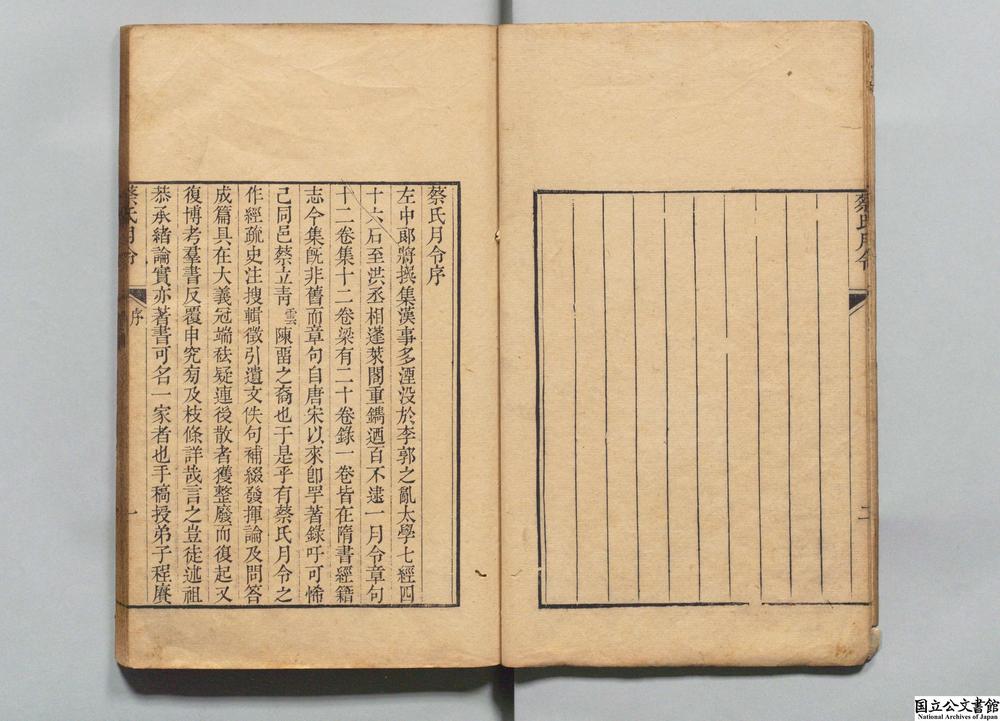 蔡氏月令
二
蔡氏月令序
左中郎將撰集漢事多湮没於李郭之亂太學七經四
十六石至洪丞相蓬萊閣重鐫迺百不逮一月令章句
十二卷集十二卷梁有二十卷錄一卷皆在隋書經籍
志今集旣非舊而章句自唐宋以來卽罕著錄吁可悕
已同邑蔡立靑雲陳畱之裔也于是乎有蔡氏月令之
作經疏史注搜輯徵引遺文佚句補綴發揮論及問答
成篇具在大義冠端祛疑連後散者獲整廢而復起又
復博考羣書反覆申究旁及枝條詳哉言之豈徒述祖
恭承緒論實亦著書可名一家者也手稿授弟子程賡
蔡氏月令
序
一
国立公文書館
National Archives of Japan